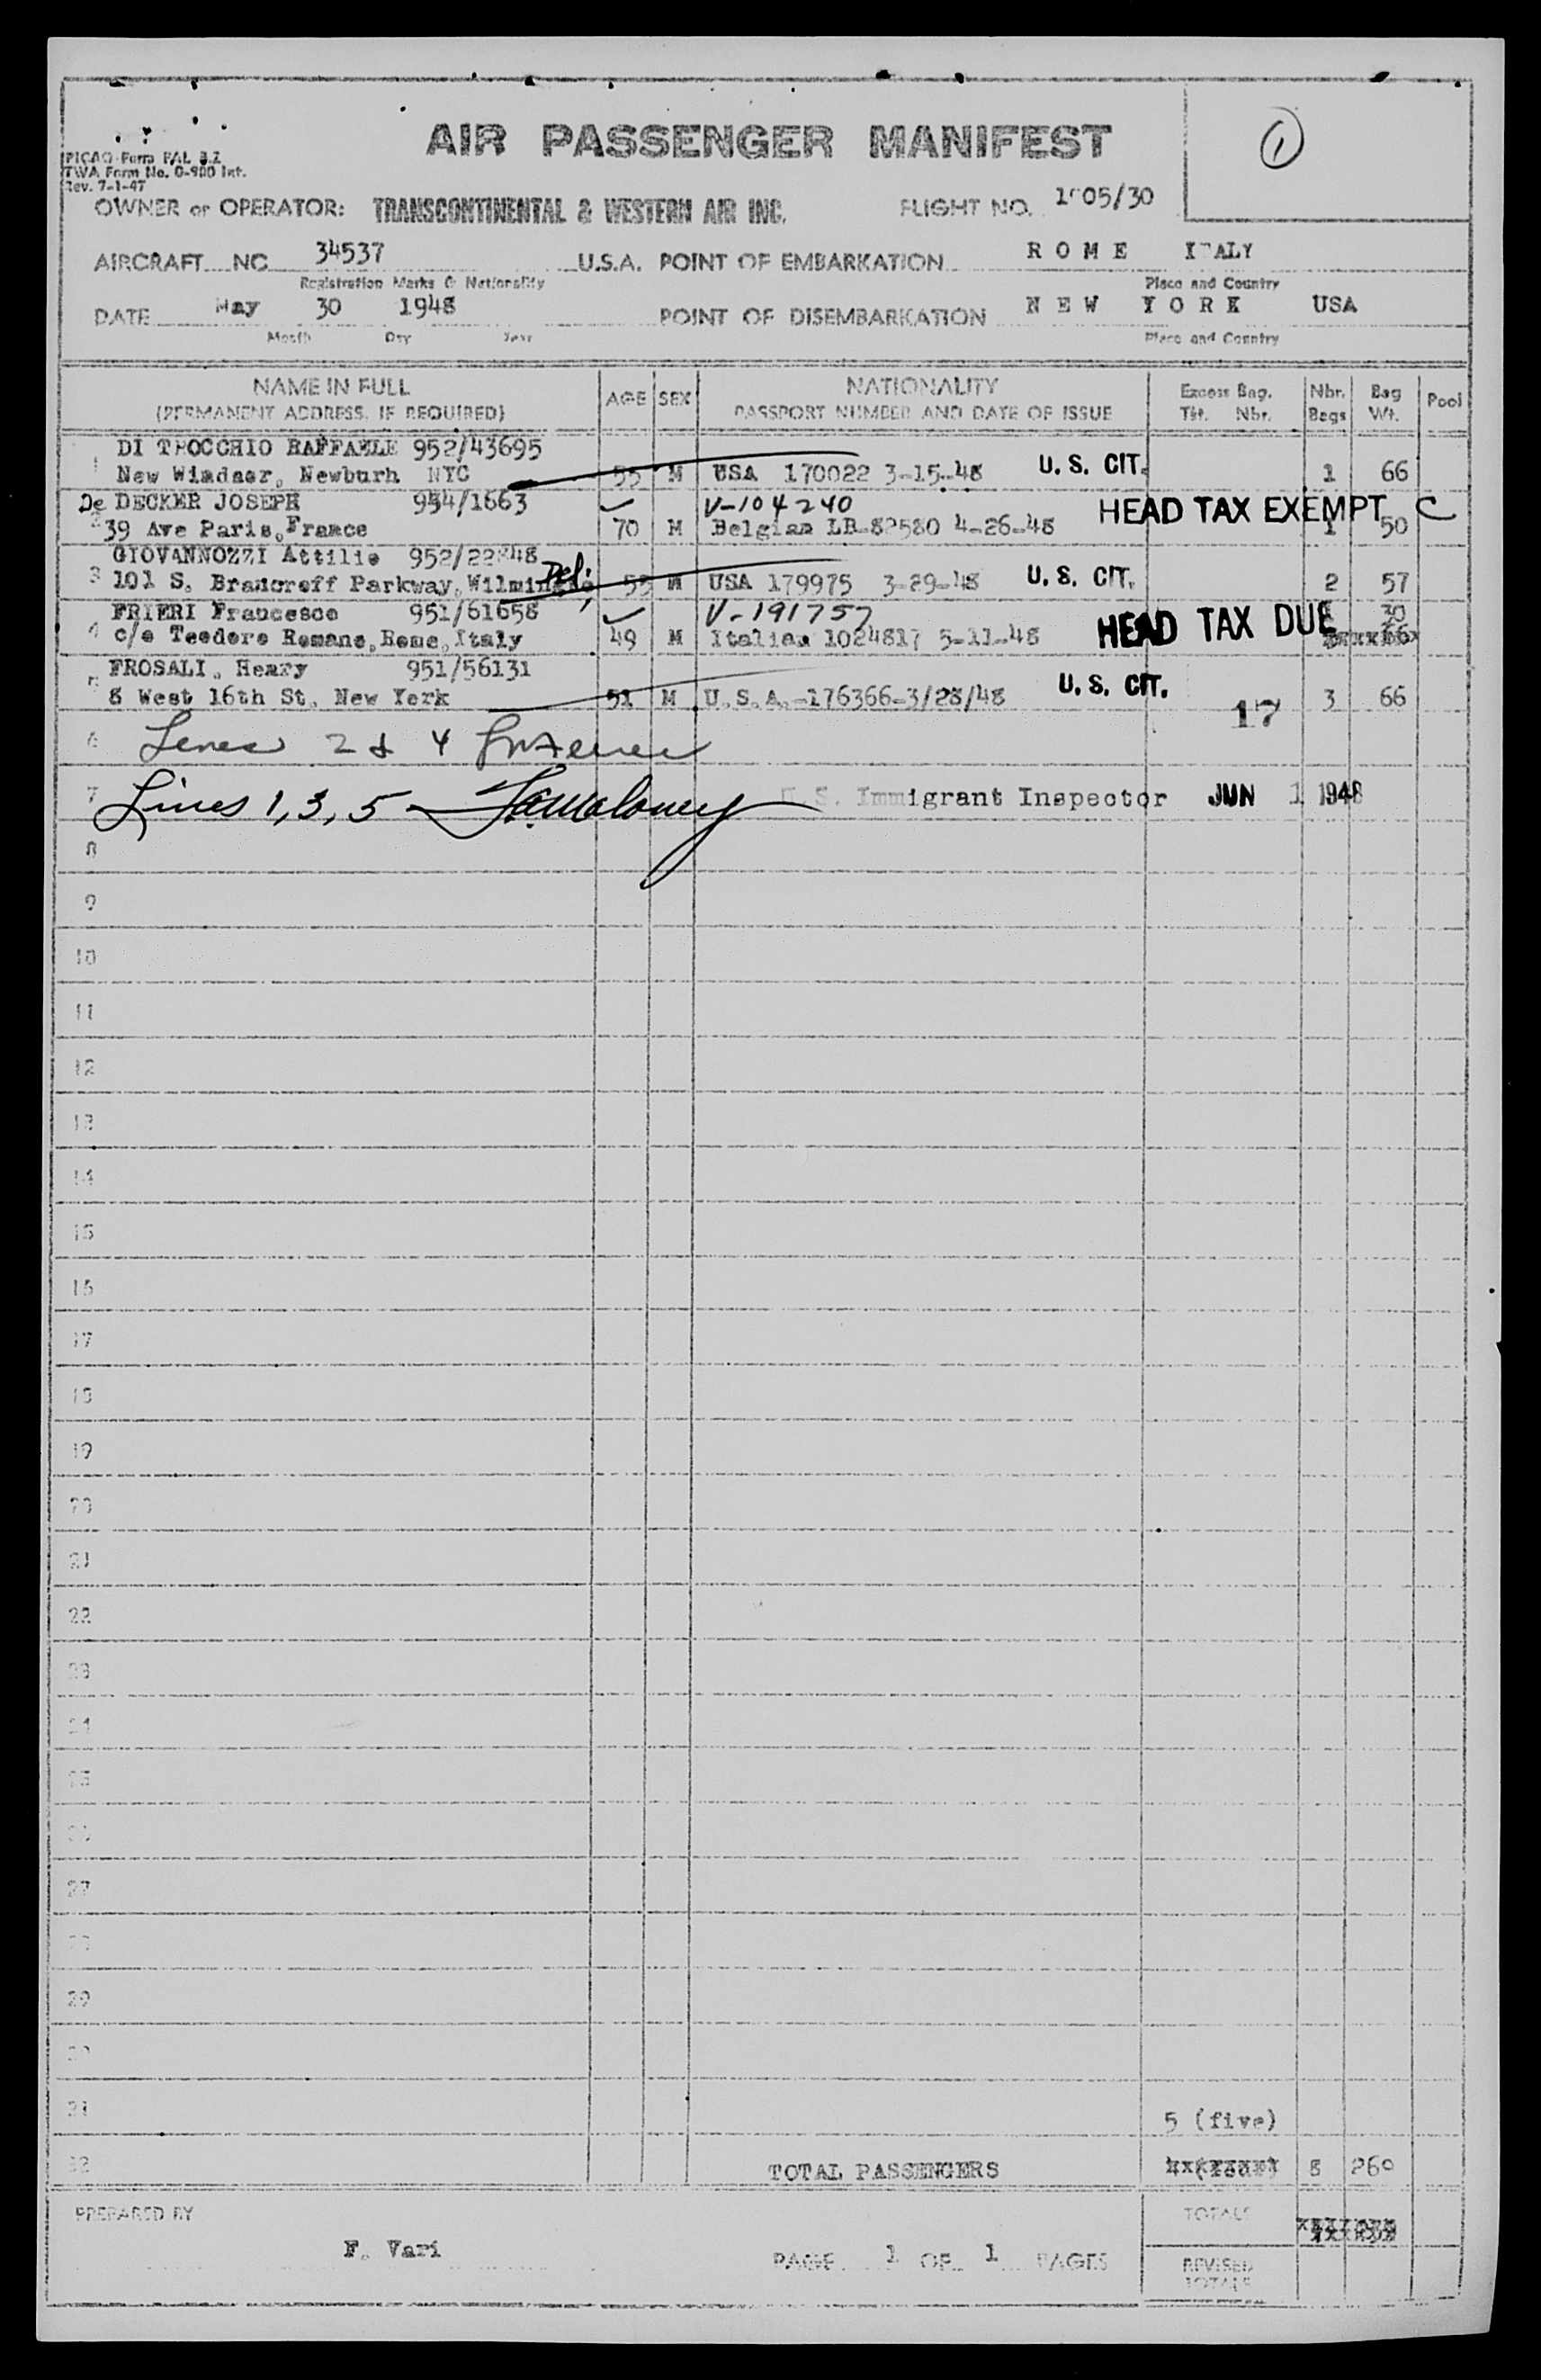 AIR PASSENGER MANIFEST
1
PICAO Form FAL 3.2
TWA Form No. O-900 Int.
Rev. 7-1-47
OWNER or OPERATOR: TRANSCONTINENTAL & WESTERN AIR INC. FLIGHT NO. 05/30
AIRCRAFT NC 34537 U.S.A. POINT OF EMBARKATION ROME ITALY
Registration Marks & Nationality Place and Country
DATE May 30 1948 POINT OF DISEMBARKATION NEW YORK USA
Month Day Year Place and Country
NAME IN FULL AGE SEX NATIONALITY Excess Bag. Nbr. Bag Pool
(PERMANENT ADDRESS, IF REQUIRED) PASSPORT NUMBER AND DATE OF ISSUE Tkt. Nbr. Bags Wt.
DI TROCCHIO RAFFAELE 952/43695
1 New Windser, Newburh NYC 55 M USA 170022 3-15-48 U. S. CIT. 1 66
De DECKER JOSEPH 954/1663 V-104240 HEAD TAX EXEMPT C
2 39 Ave Paris, France 70 M Belgian LB-82580 4-26-48 1 50
GIOVANNOZZI Attilio Del.
3 101 S. Brancroff Parkway, 55 M USA 179975 3-29-48 U. S. CIT. 2 57
FRIERI Francesco 951/61658 V-191757 HEAD TAX DUE 30
4 c/o Teodoro Romano, Rome, Italy 49 M Italian 1024817 5-11-48
FROSALI, Henry 951/56131
5 8 West 16th St. New York 51 M U.S.A.-176366-3/28/48 U. S. CIT. 3 66
17
6 Lines 2 & 4
7 Lines 1, 3, 5 U.S. Immigrant Inspector JUN 1 1948
8
9
10
11
12
13
14
15
16
17
18
19
20
21
22
23
24
25
26
27
28
29
30
31 5 (five)
32 TOTAL PASSENGERS 8 269
PREPARED BY TOTALS
F. Vari PAGE 1 OF 1 PAGES REVISED
TOTALS